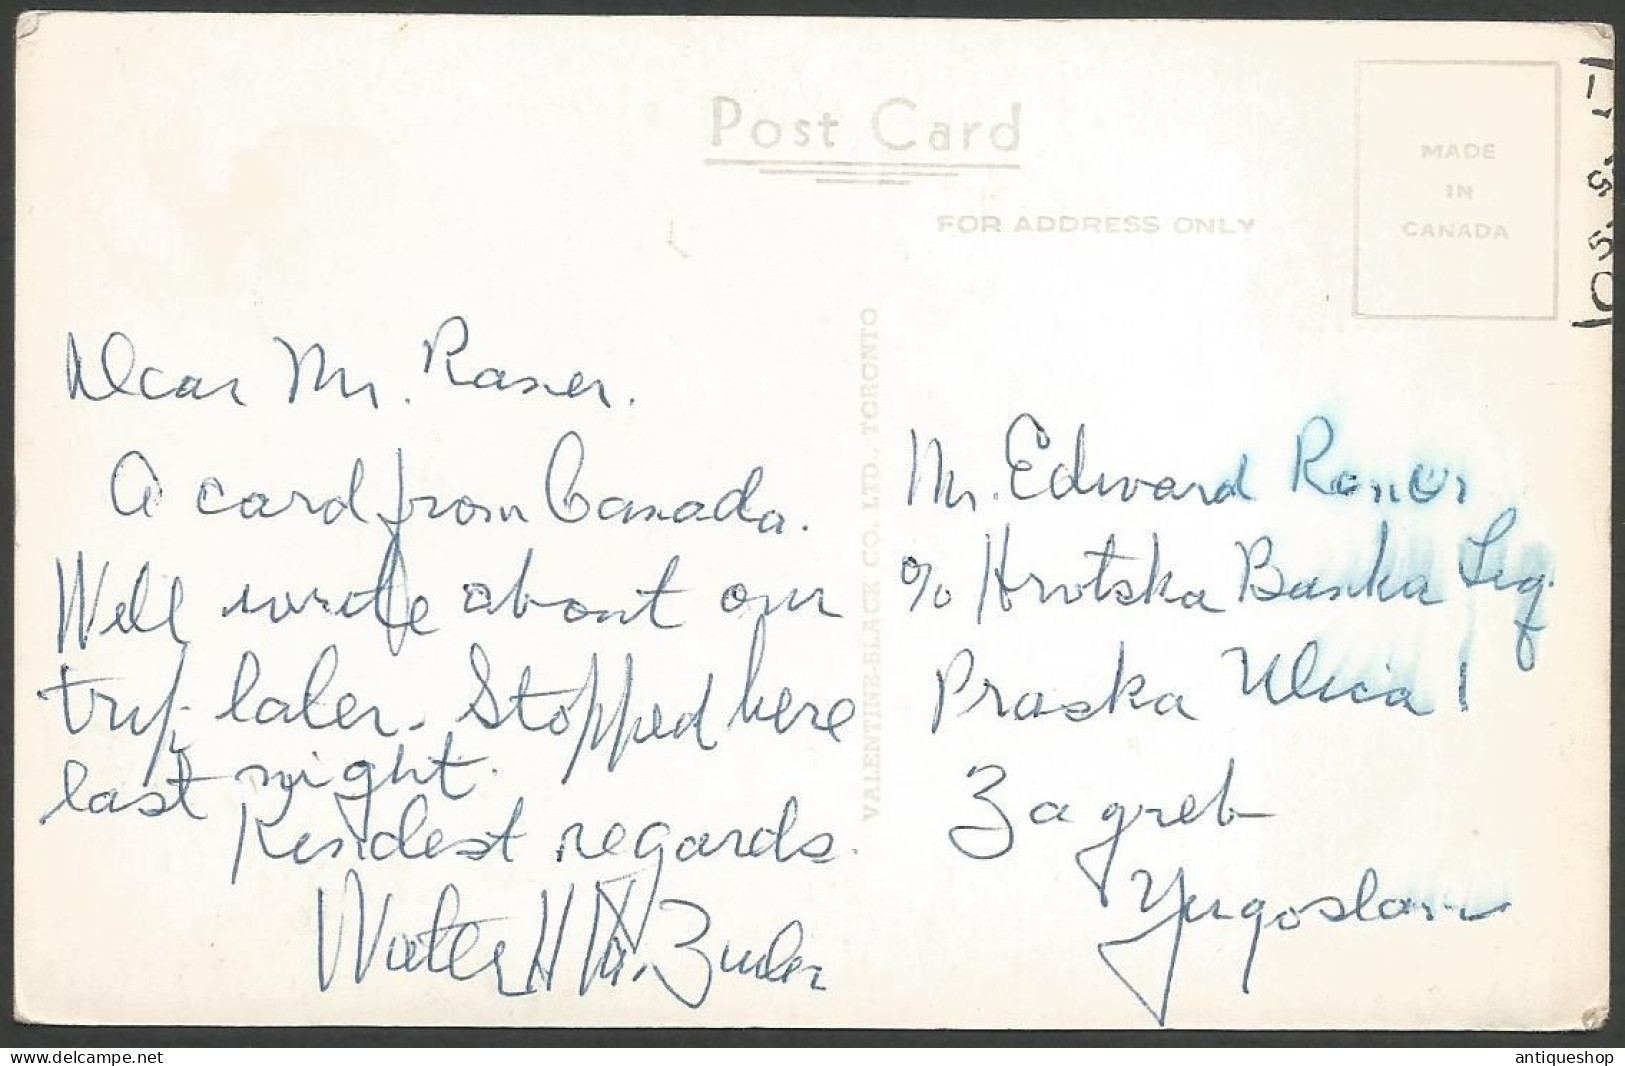 Post Card
FOR ADDRESS ONLY
MADE
IN
CANADA
VALENTINE-BLACK CO. LTD., TORONTO
Dear Mr. Raner.
A card from Canada.
Well write about our
trip later. Stopped here
last night.
Kindest regards.
Walter H
Mr. Edward Raner
c/o Hrvtska Banka
Praska Ulica 1
Zagreb
Yugoslavia
antiqueshop
www.delcampe.net